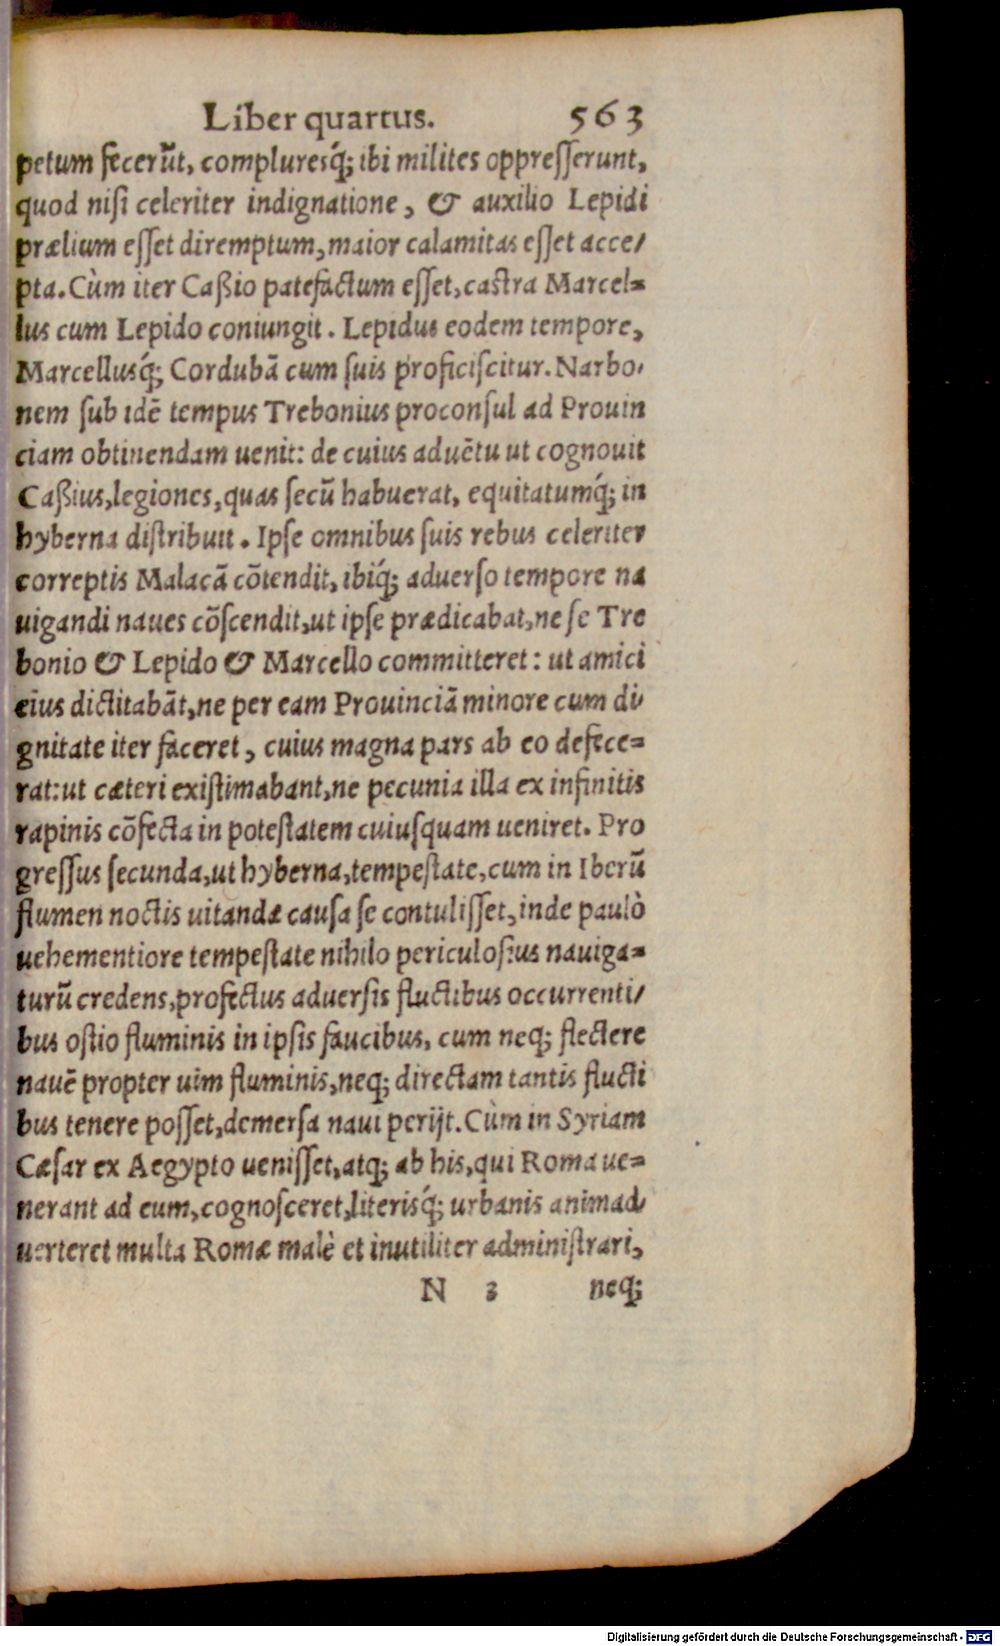 Liber quartus. 563
petum fecerūt, compluresq́; ibi milites oppreſſerunt,
quod niſi celeriter indignatione, & auxilio Lepidi
prælium eſſet diremptum, maior calamitas eſſet acce/
pta. Cùm iter Caßio patefactum eſſet, castra Marcel=
lus cum Lepido coniungit. Lepidus eodem tempore,
Marcellusq́; Cordubā cum ſuis proficiſcitur. Narbo/
nem ſub idē tempus Trebonius proconſul ad Prouin
ciam obtinendam uenit: de cuius aduētu ut cognouit
Caßius, legiones, quas ſecū habuerat, equitatumq́; in
hyberna diſtribuit. Ipſe omnibus ſuis rebus celeriter
correptis Malacā cōtendit, ibiq́; aduerſo tempore na
uigandi naues cōſcendit, ut ipſe prædicabat, ne ſe Tre
bonio & Lepido & Marcello committeret: ut amici
eius dictitabāt, ne per eam Prouinciā minore cum di/
gnitate iter faceret, cuius magna pars ab eo defece=
rat: ut cæteri exiſtimabant, ne pecunia illa ex infinitis
rapinis cōfecta in poteſtatem cuiuſquam ueniret. Pro
greſſus ſecunda, ut hyberna, tempeſtate, cum in Iberū
flumen noctis uitandæ cauſa ſe contuliſſet, inde paulò
uehementiore tempeſtate nihilo periculoſius nauiga=
turū credens, profectus aduerſis fluctibus occurrenti/
bus oſtio fluminis in ipſis faucibus, cum neq; flectere
nauē propter uim fluminis, neq; directam tantis flucti
bus tenere poſſet, demerſa naui perijt. Cùm in Syriam
Cæſar ex Aegypto ueniſſet, atq; ab his, qui Roma ue=
nerant ad eum, cognoſceret, literisq́; urbanis animad/
uerteret multa Romæ malè et inutiliter adminiſtrari,
N 3 neq;
Digitalisierung gefördert durch die Deutsche Forschungsgemeinschaft - DFG